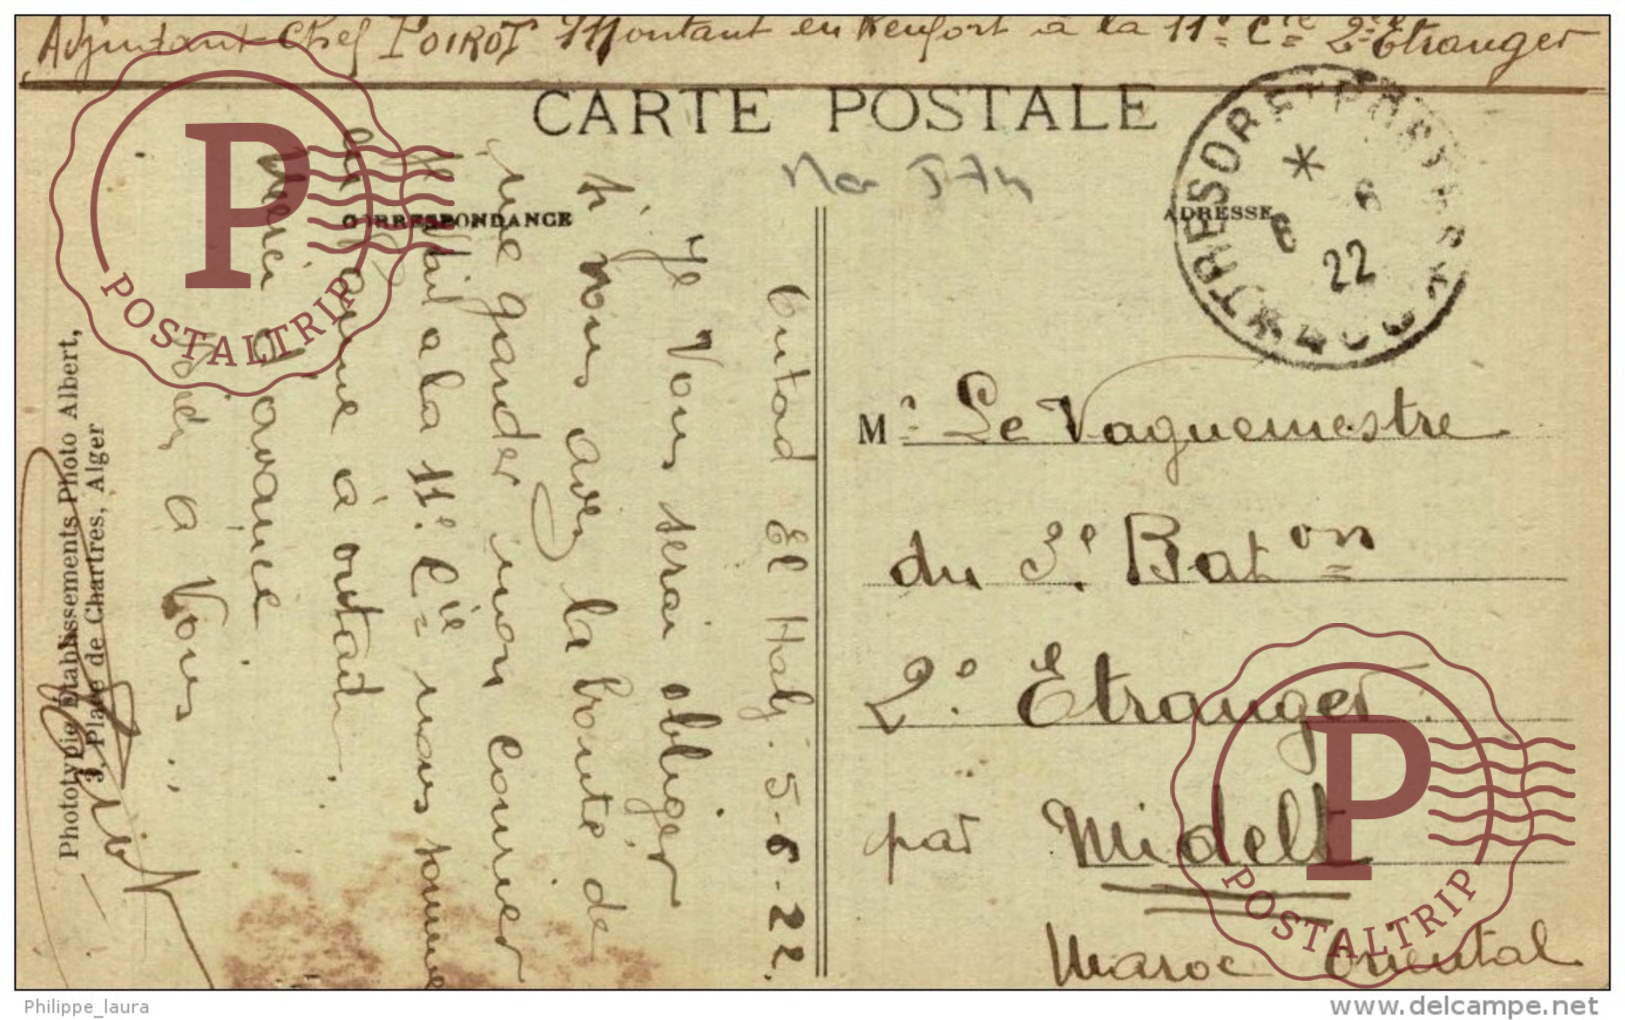 Adjudant-Chef POIROT Montant en Renfort à la 11e Cie 2e Etranger
CARTE POSTALE
CORRESPONDANCE
ADRESSE
TRESOR ET POSTES
6 6
22
Outad El Hadj. 5-6-22.
Je Vous serai obliger
si vous avez la bonté de
me garder mon courier
à la 11e Cie nous somme
en
Merci d'avance
à Vous
Mr Le Vaguemestre
du 3e Baton
2e Etranger
par Midelt
Maroc Oriental
Phototypie Etablissements Photo Albert,
3, Place de Chartres, Alger
POSTALTRIP
POSTALTRIP
Philippe_laura
www.delcampe.net